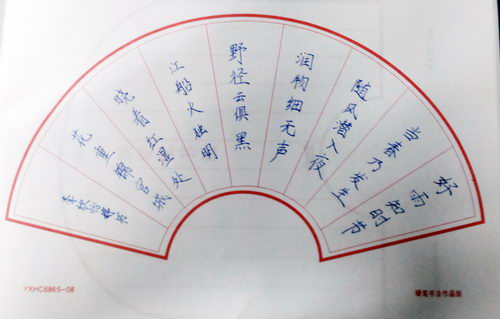 好雨知时节
当春乃发生
随风潜入夜
润物细无声
野径云俱黑
江船火烛明
晓看红湿处
花重锦官城
YXHC6865-08
硬笔书法作品纸